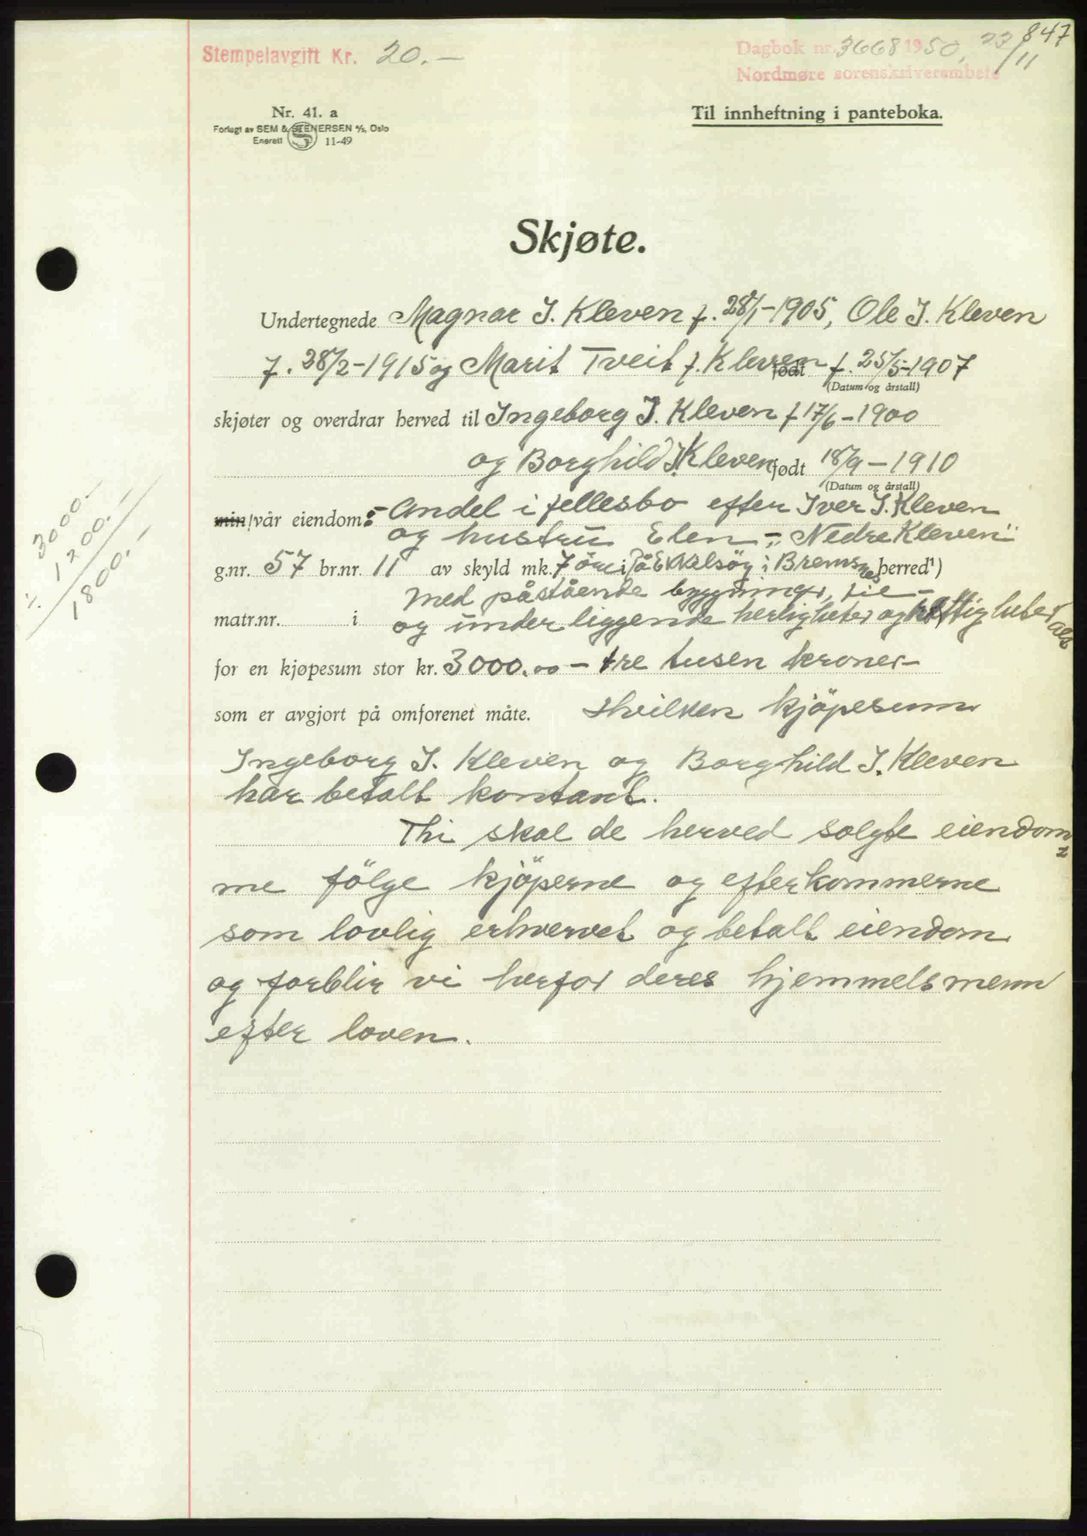 847
Stempelavgift Kr. 20.—
Dagbok nr. 3668 1950, 23/11
Nordmøre sorenskriverembete
Nr. 41. a
Forlagt av SEM & STENERSEN A/S, Oslo
Enerett 11-49
Til innheftning i panteboka.
Skjøte.
Undertegnede Magnar I. Kleven f. 28/1-1905, Ole I. Kleven
f. 28/2-1915 og Marit Tveit f. Kleven født f. 25/5-1907
(Datum og årstall)
skjøter og overdrar herved til Ingeborg I. Kleven f 17/6-1900
og Borghild I. Kleven født 18/9-1910
(Datum og årstall)
min/vår eiendom:- Andel i fellesbo efter Iver I. Kleven
og hustru Elen -„Nedre Kleven"
g.nr. 57 br.nr. 11 av skyld mk. 7 øre i på Ekkilsöy i Bremsnes herred¹)
Med påstående bygninger, til-
matr.nr. i og underliggende herligheter og rettigheter
for en kjøpesum stor kr. 3000.00 - tre tusen kroner-
som er avgjort på omforenet måte. Hvilken kjöpesum
Ingeborg I. Kleven og Borghild I. Kleven
har betalt kontant.
Thi skal de herved solgte eiendom-
me fölge kjöperne og efterkommerne
som lovlig erhvervet og betalt eiendom
og forblir vi herfor deres hjemmelsmenn
efter loven.
3000.-
÷ 1200.-
1800.-